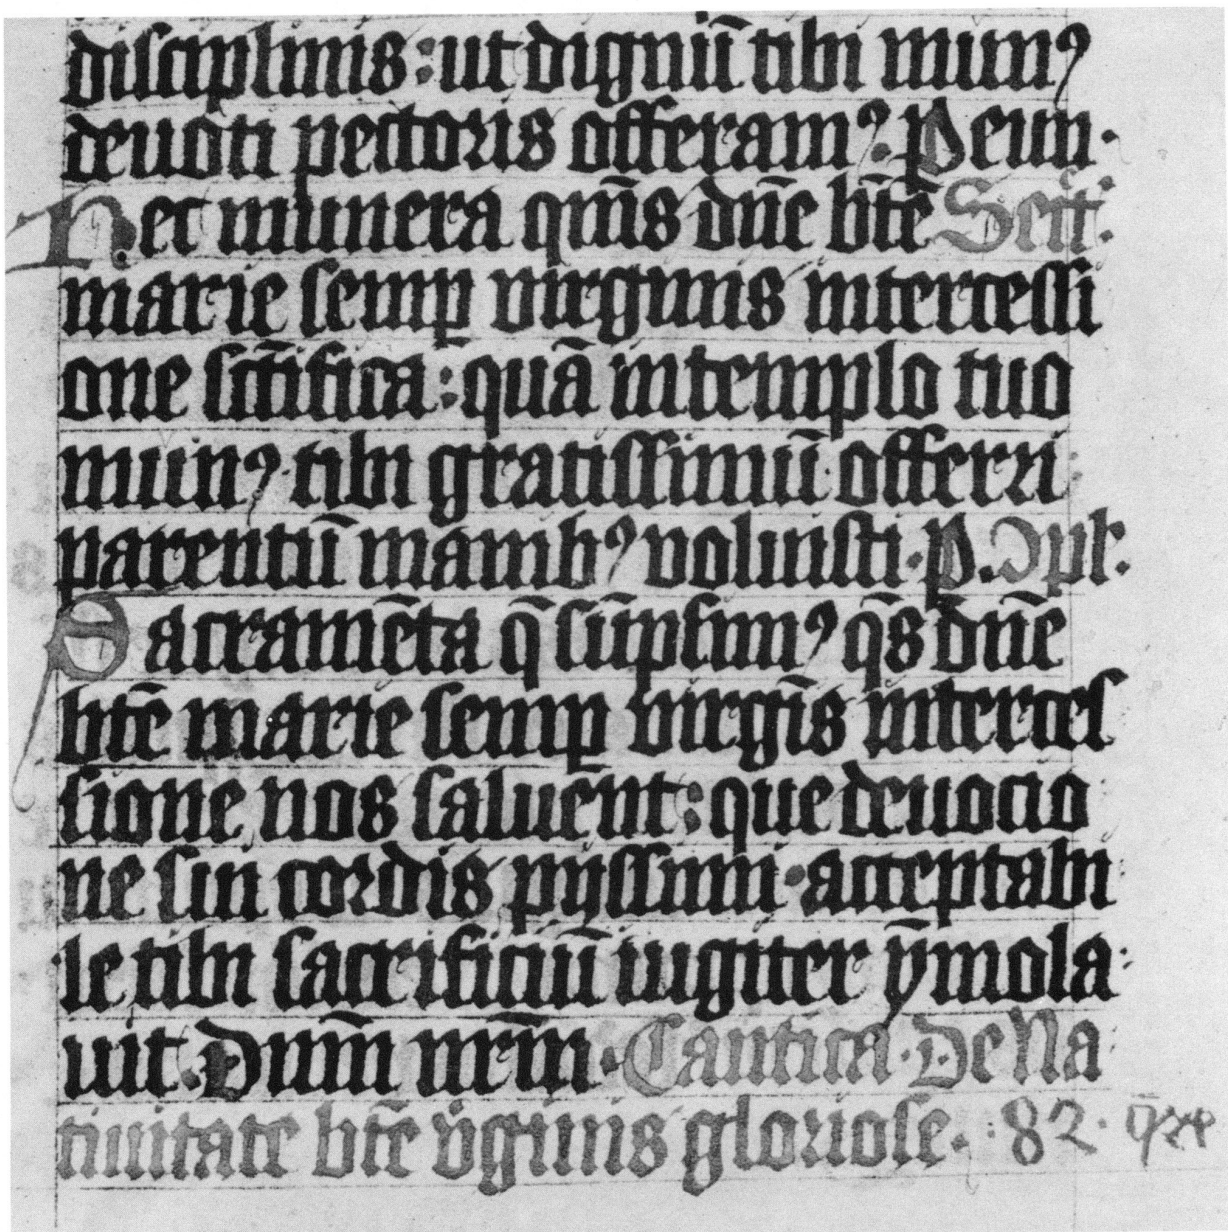 disciplinis: ut dignū tibi mun⁹
deuoti pectoris offeram⁹. P eun·
Hec munera qm̄s dn̄e bt̄e Secr̄.
marie semꝑ virginis intercessi
one sc̄ifica: quā in templo tuo
mun⁹ tibi gratissimū offerri
parentū manib⁹ voluisti. P. ↄpl.
Sacramēta q̄ sūpsim⁹ q̄s dn̄e
bt̄e marie semꝑ virgīs interces
sione nos saluent: que deuocio
ne sui cordis pijssimi acceptabi
le tibi sacrificiū iugiter ȳmola
uit. Dn̄m nr̄m. Cantica. De Na
tiuitate bt̄e v̄ginis gloriose. 82.